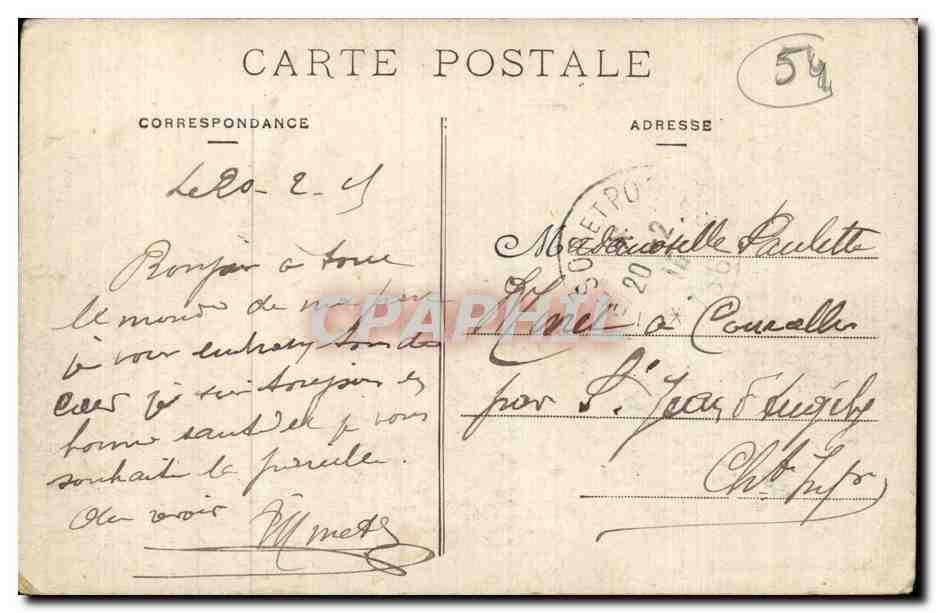 CARTE POSTALE
54
CORRESPONDANCE
Le 20 - 2 - 15
Bonjour à tous
le monde de
je vous embrasse tous de
cœur je suis toujours en
bonne santé et je vous
souhaite la pareille.
Au revoir
ADRESSE
Mademoiselle Paulette
à Courcelles
par St. Jean d'Angély
Chte Infr
20 2
CPAPHIL